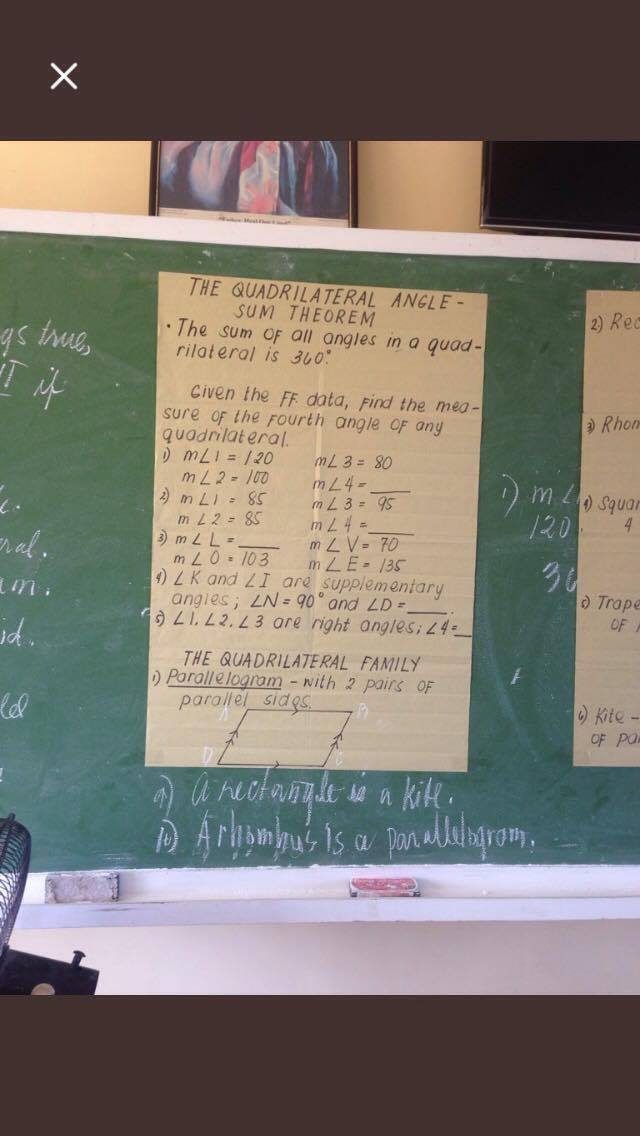 THE QUADRILATERAL ANGLE-
SUM THEOREM
• The sum OF all angles in a quad-
rilateral is 360°.
Given the FF. data, Find the mea-
sure OF the Fourth angle OF any
quadrilateral.
1) m∠1 = 120 m∠3 = 80
m∠2 = 100 m∠4 = ____
2) m∠1 = 85 m∠3 = 95
m∠2 = 85 m∠4 = ____
3) m∠L = ____ m∠V = 70
m∠O = 103 m∠E = 135
4) ∠K and ∠I are supplementary
angles; ∠N = 90° and ∠D = ____.
5) ∠1, ∠2, ∠3 are right angles; ∠4 = __
THE QUADRILATERAL FAMILY
1) Parallelogram - with 2 pairs OF
parallel sides.
A B
D C
9) A rectangle is a kite.
10) A rhombus is a parallelogram.
gs true,
if
id.
1) m∠
120
36
2) Rec
3) Rhom
4) Squar
4
5) Trape
OF
6) Kite -
OF pa